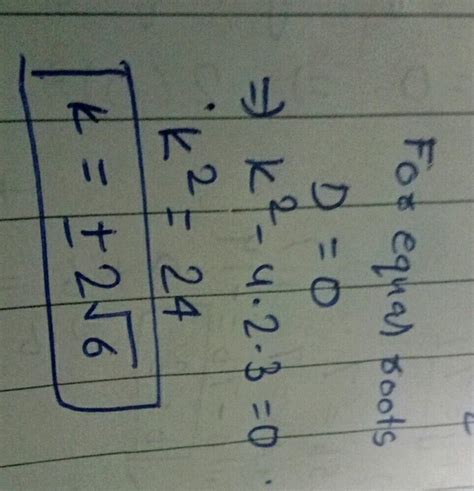 For equal roots
D = 0
⇒ k² - 4.2.3 = 0.
k² = 24
k = ± 2√6